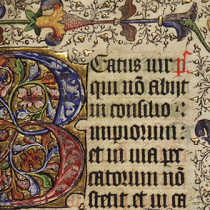 Beatus uir ps
qui nõ abijt
in consilio
impiorum:
et in uia pec
catorum nõ
stetit. et in ca